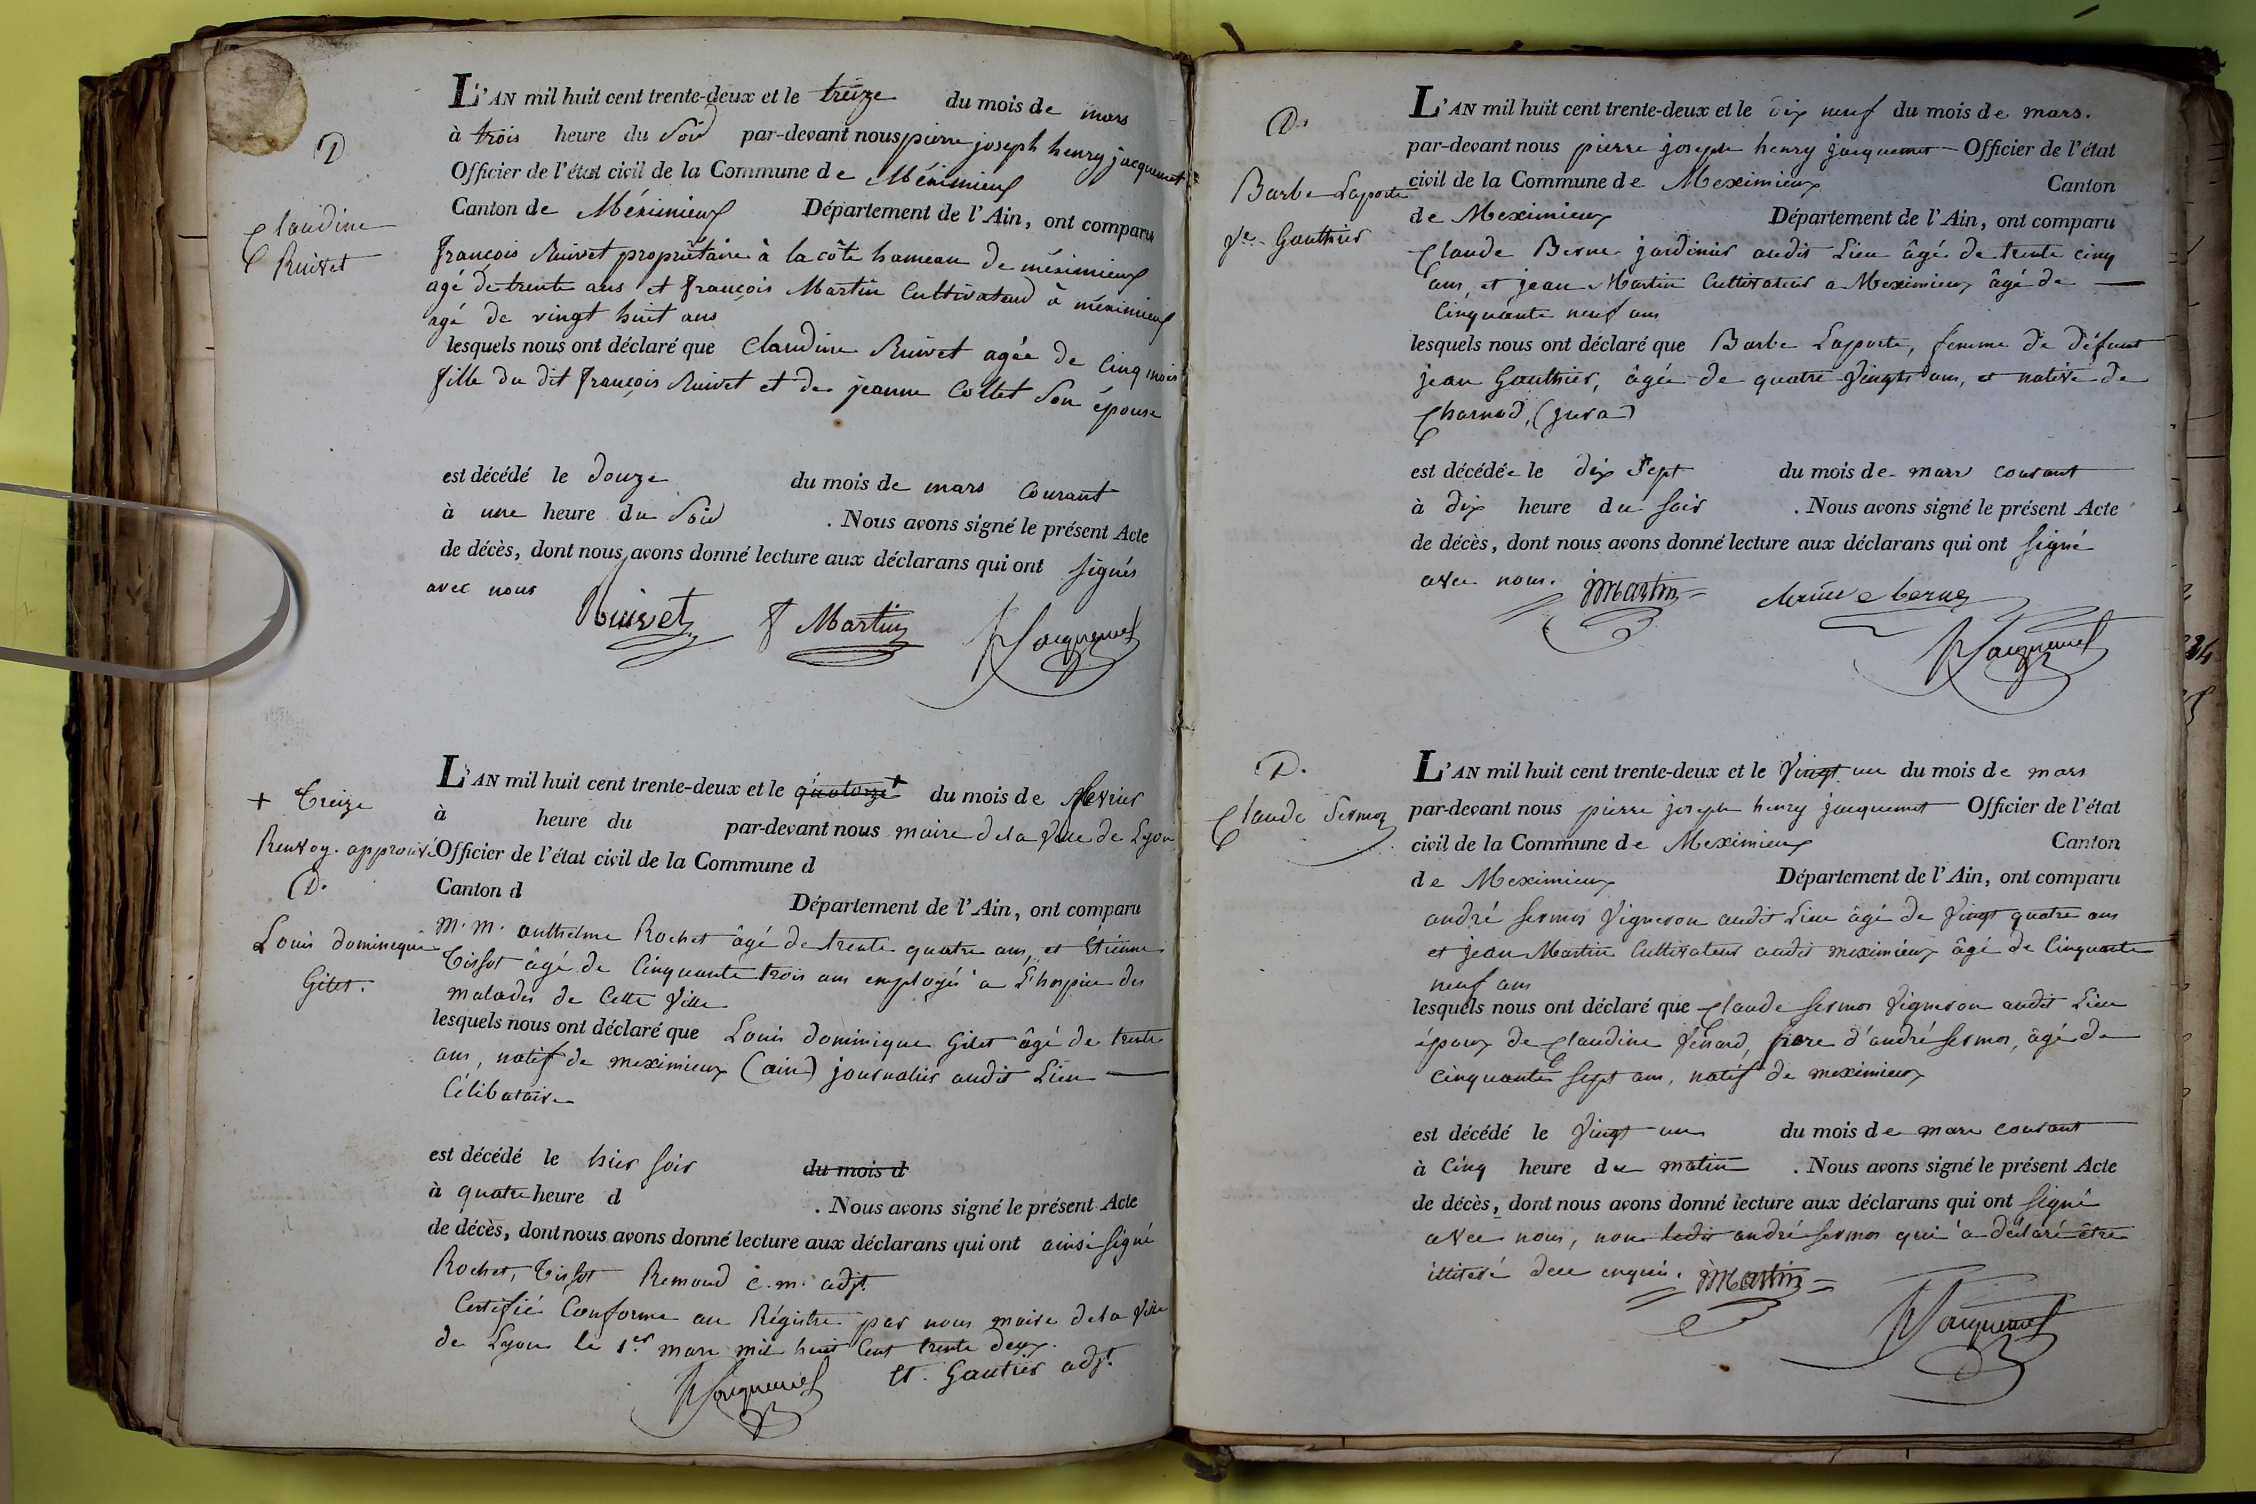 D
Claudine
Ruivet
L'AN mil huit cent trente-deux et le treize du mois de mars
à trois heure du Soir par-devant nous pierre joseph henry jacquemet
Officier de l'état civil de la Commune de Méximieux
Canton de Méximieux Département de l'Ain, ont comparu
françois Ruivet propriétaire à la côte hameau de méximieux
agé de trente ans et françois Martin Cultivateur à méximieux
agé de vingt huit ans
lesquels nous ont déclaré que Claudine Ruivet agée de Cinq mois
fille du dit françois Ruivet et de jeanne Collet Son épouse
est décédé le douze du mois de mars Courant
à une heure du Soir . Nous avons signé le présent Acte
de décès, dont nous avons donné lecture aux déclarans qui ont signés
avec nous
Ruivet f Martin Jacquemet
+ treize
Renvoy. approuvé
D.
Louis dominique
Gilet.
L'AN mil huit cent trente-deux et le quatorze + du mois de fevrier
à heure du par-devant nous maire de la Ville de Lyon
Officier de l'état civil de la Commune d
Canton d Département de l'Ain, ont comparu
M. M. anthelme Rochet âgé de trente quatre ans, et Etienne
Tissot âgé de Cinquante trois ans employés a L'hospice des
malades de Cette Ville
lesquels nous ont déclaré que Louis dominique Gilet âgé de trente
ans, natif de meximieux (ain) journalier audit Lieu
Célibataire
est décédé le hier soir du mois d
à quatre heure d . Nous avons signé le présent Acte
de décès, dont nous avons donné lecture aux déclarans qui ont ainsi signé
Rochet, Tissot Remond c. m. adjt.
Certifié Conforme au Régistre par nous maire de la Ville
de Lyon le 1.er mars mil huit Cent trente deux.
Jacquemet Et. Gautier adjt.
D.
Barbe Laporte
Ve. Gauthier
L'AN mil huit cent trente-deux et le dix neuf du mois de mars.
par-devant nous pierre joseph henry jacquemet Officier de l'état
civil de la Commune de Meximieux Canton
de Meximieux Département de l'Ain, ont comparu
Claude Berne jardinier audit Lieu âgé de trente cinq
ans, et jean Martin Cultivateur a Meximieux âgé de
Cinquante neuf ans
lesquels nous ont déclaré que Barbe Laporte, femme de défunt
jean Gauthier, âgée de quatre Vingts ans, et native de
Charnod, (jura)
est décédée le dix Sept du mois de mars courant
à dix heure du soir . Nous avons signé le présent Acte
de décès, dont nous avons donné lecture aux déclarans qui ont signé
avec nous. jMartin claude berne
Jacquemet
D.
Claude Sermoz
L'AN mil huit cent trente-deux et le Vingt un du mois de mars
par-devant nous pierre joseph henry jacquemet Officier de l'état
civil de la Commune de Meximieux Canton
de Meximieux Département de l'Ain, ont comparu
andré sermos Vigneron audit Lieu âgé de Vingt quatre ans
et jean Martin Cultivateur audit meximieux âgé de Cinquante
neuf ans
lesquels nous ont déclaré que Claude sermos Vigneron audit Lieu
époux de Claudine Vénard, père d'andré sermos, âgé de
cinquante sept ans, natif de meximieux
est décédé le Vingt un du mois de mars courant
à Cinq heure du matin . Nous avons signé le présent Acte
de décès, dont nous avons donné lecture aux déclarans qui ont signé
avec nous, non ledit andré sermos qui a déclaré être
illiteré de ce enquis. jMartin
Jacquemet